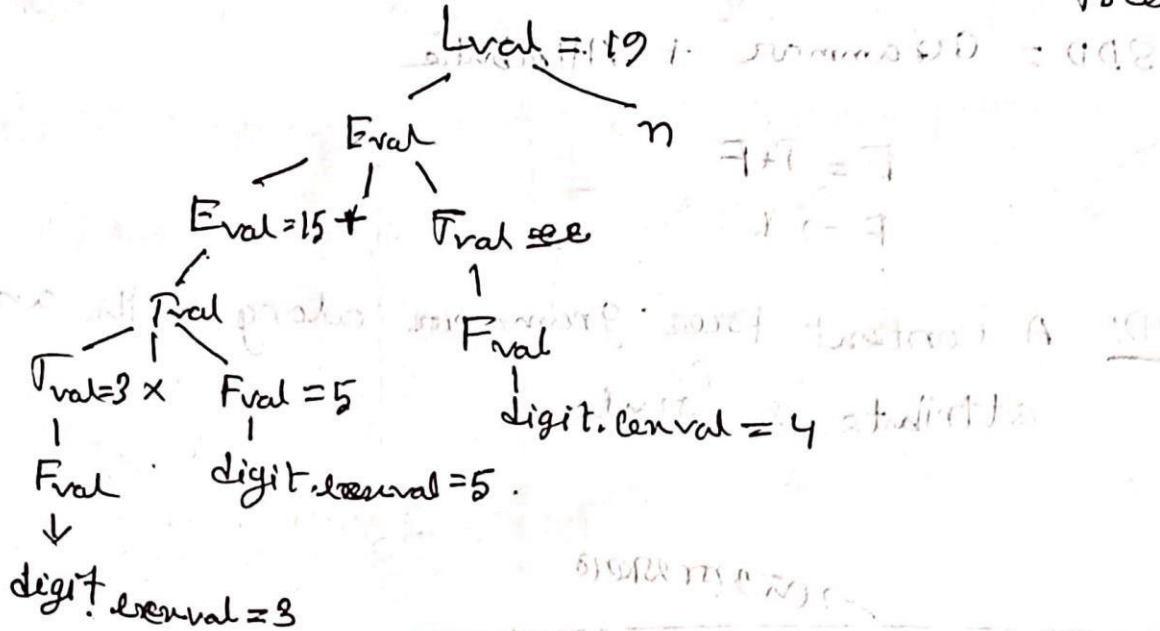 Lval = 19
Eval n
Eval = 15 + Tval
Tval Fval
Tval=3 × Fval = 5 digit.lexval = 4
Fval digit.lexval = 5.
digit.lexval = 3